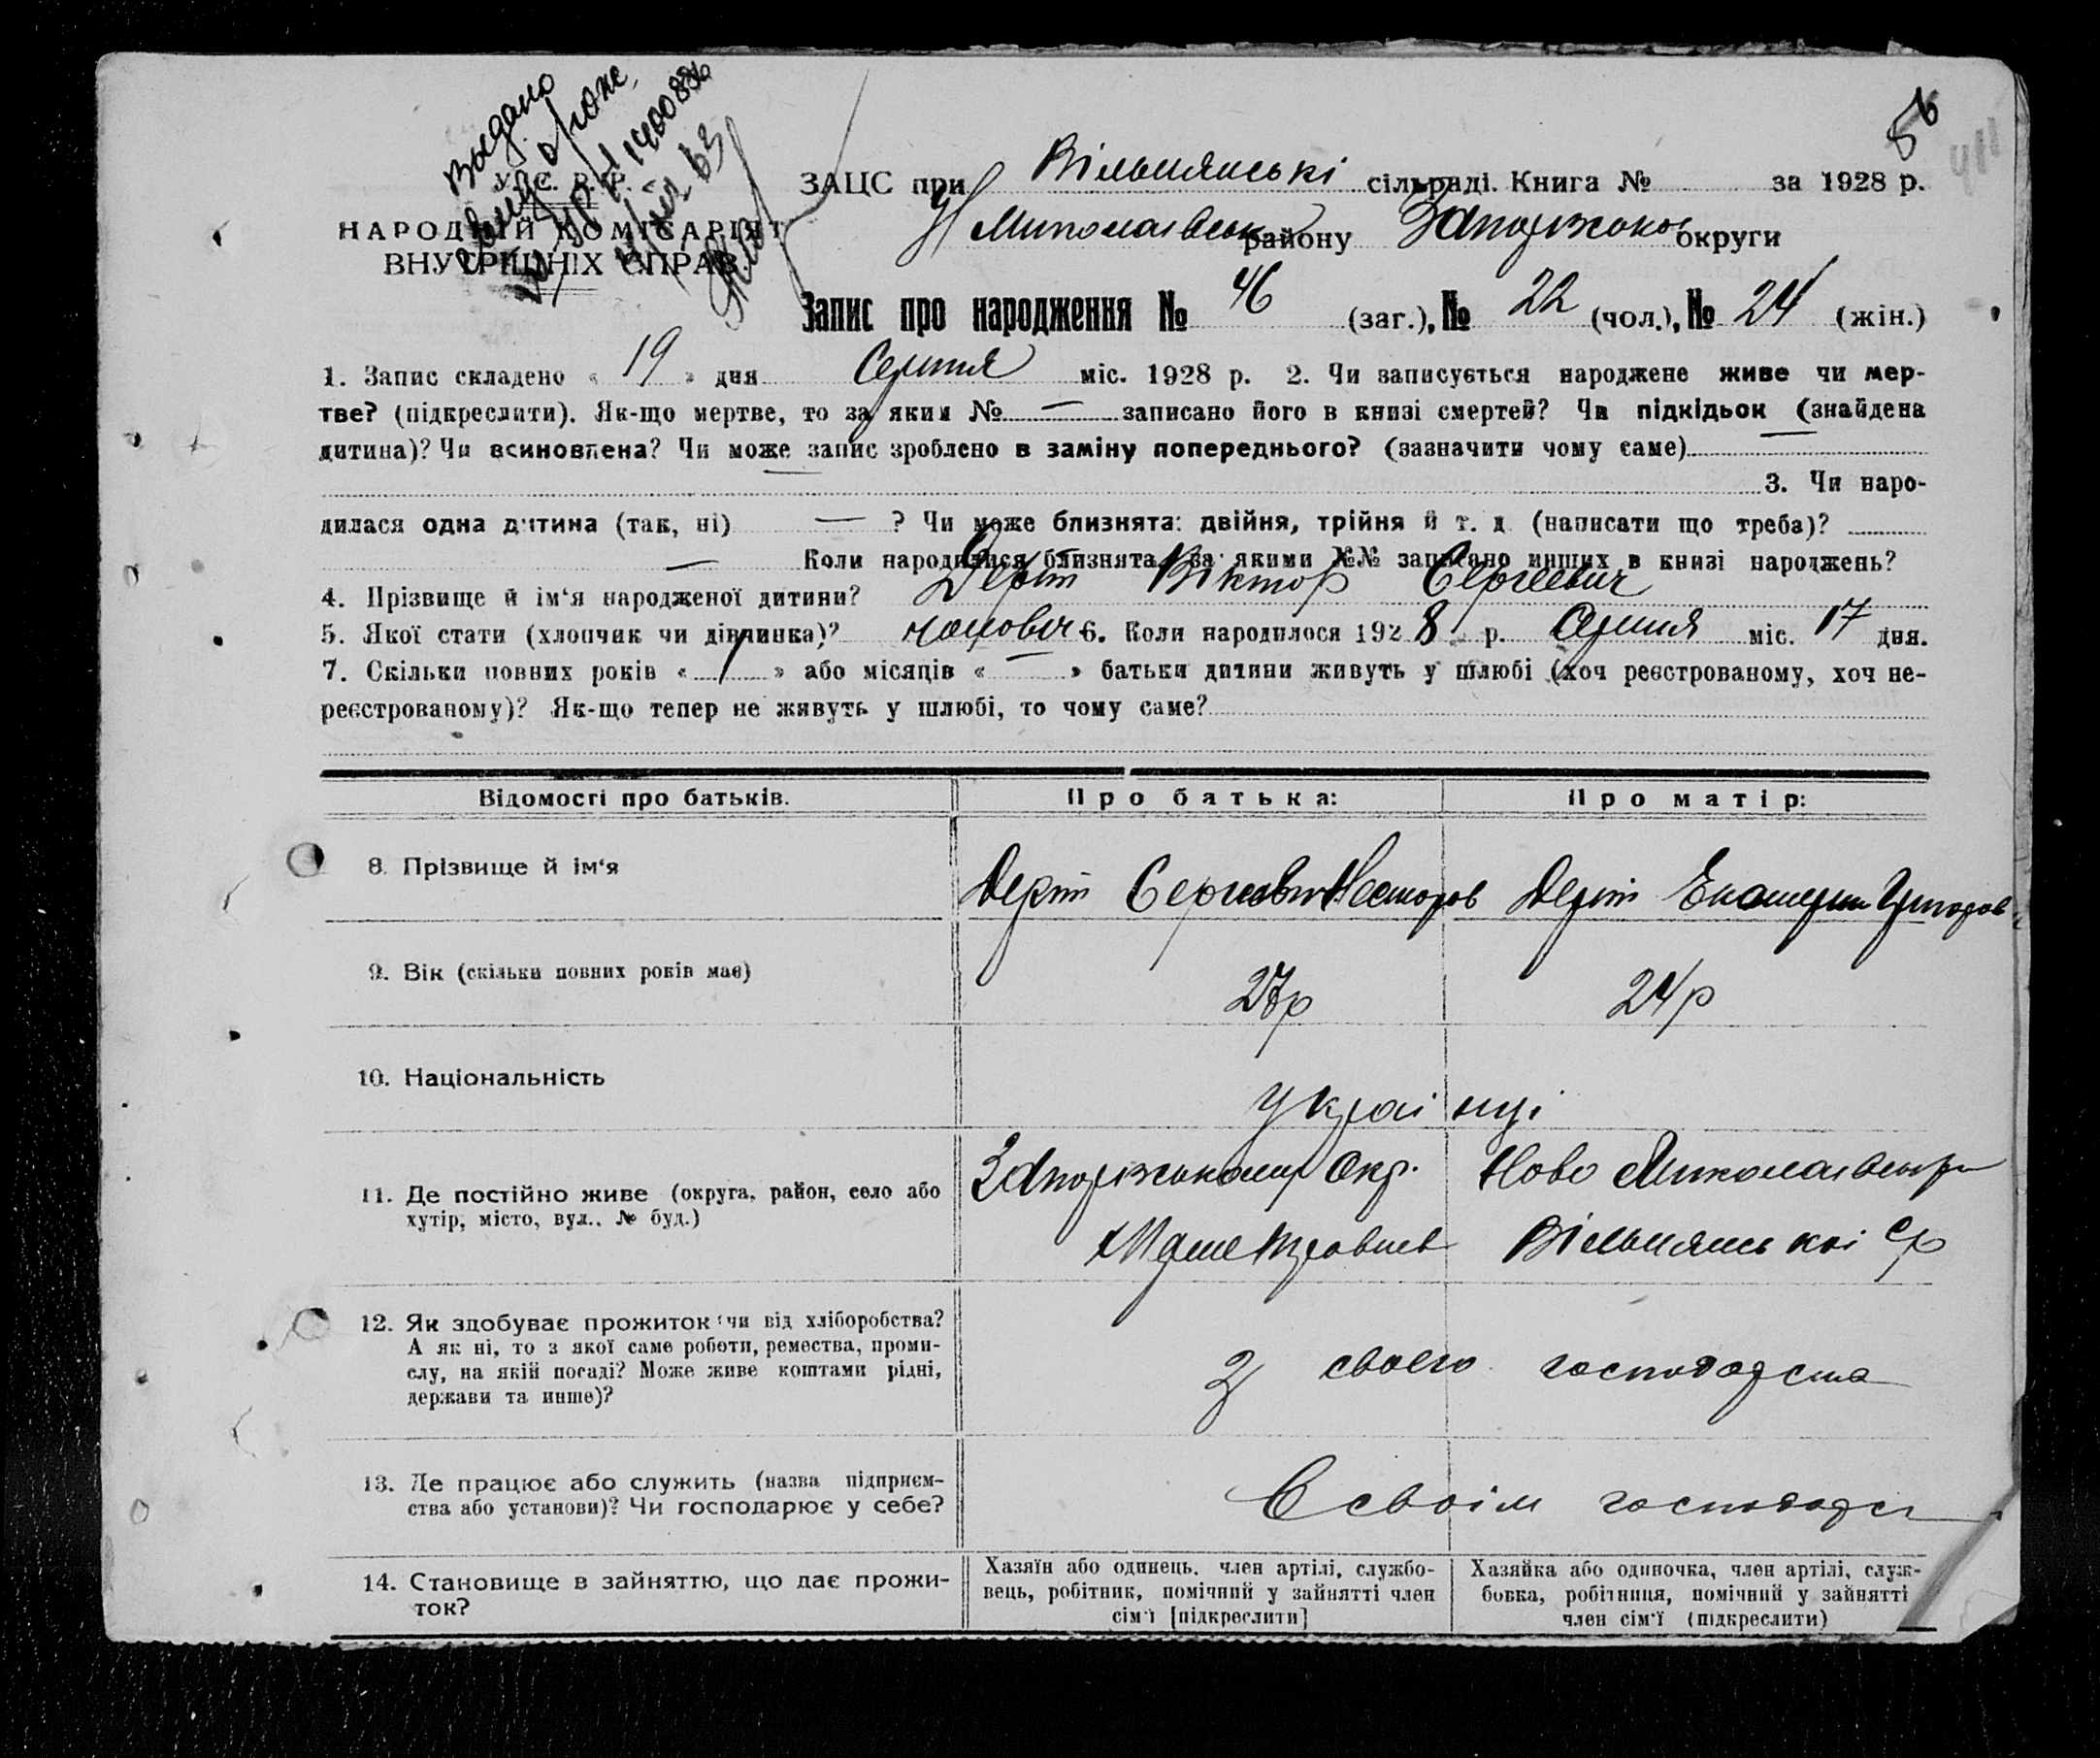 Выдано
56
У.С.Р.Р.
НАРОДНІЙ КОМІСАРІЯТ
ВНУТРІШНІХ СПРАВ
ЗАЦС при Вільнянські сільраді. Книга № за 1928 р.
Н Миколаївськ району Запоріжськ округи
Запис про народження № 46 (заг.), № 22 (чол.), № 24 (жін.)
1. Запис складено « 19 » дня Серпня міс. 1928 р. 2. Чи записується народжене живе чи мер-
тве? (підкреслити). Як-що мертве, то за яким № — записано його в книзі смертей? Чи підкідьок (знайдена
дитина)? Чи всиновлена? Чи може запис зроблено в заміну попереднього? (зазначити чому саме) —
3. Чи наро-
дилася одна дитина (так, ні) — ? Чи може близнята: двійня, трійня й т. д. (написати що треба)?
— Коли народилися близнята, за якими №№ записано инших в книзі народжень?
4. Прізвище й ім‘я народженої дитини? Віктор Сергієвич
5. Якої стати (хлопчик чи дівчинка)? чоловіч 6. Коли народилося 1928 р. Серпня міс. 17 дня.
7. Скільки повних років « 1 » або місяців « — » батьки дитини живуть у шлюбі (хоч реєстрованому, хоч не-
реєстрованому)? Як-що тепер не живуть у шлюбі, то чому саме?
Відомості про батьків. Про батька: Про матір:
8. Прізвище й ім‘я
9. Вік (скільки повних років має) 27р 24р
10. Національність українці
11. Де постійно живе (округа, район, село або
хутір, місто, вул., № буд.)
Запоріжськоі Окр. Ново Миколаївськ
Вільнянські с/р
12. Як здобуває прожиток чи від хліборобства?
А як ні, то з якої саме роботи, ремества, проми-
слу, на якій посаді? Може живе коштами рідні,
держави та инше)?
З своего господарства
13. Де працює або служить (назва підприєм-
ства або установи)? Чи господарює у себе?
В своім господарс
14. Становище в зайняттю, що дає прожи-
ток?
Хазяїн або одинець, член артілі, службо-
вець, робітник, помічний у зайнятті член
сім‘ї [підкреслити]
Хазяйка або одиночка, член артілі, служ-
бовка, робітниця, помічний у зайнятті
член сім‘ї (підкреслити)